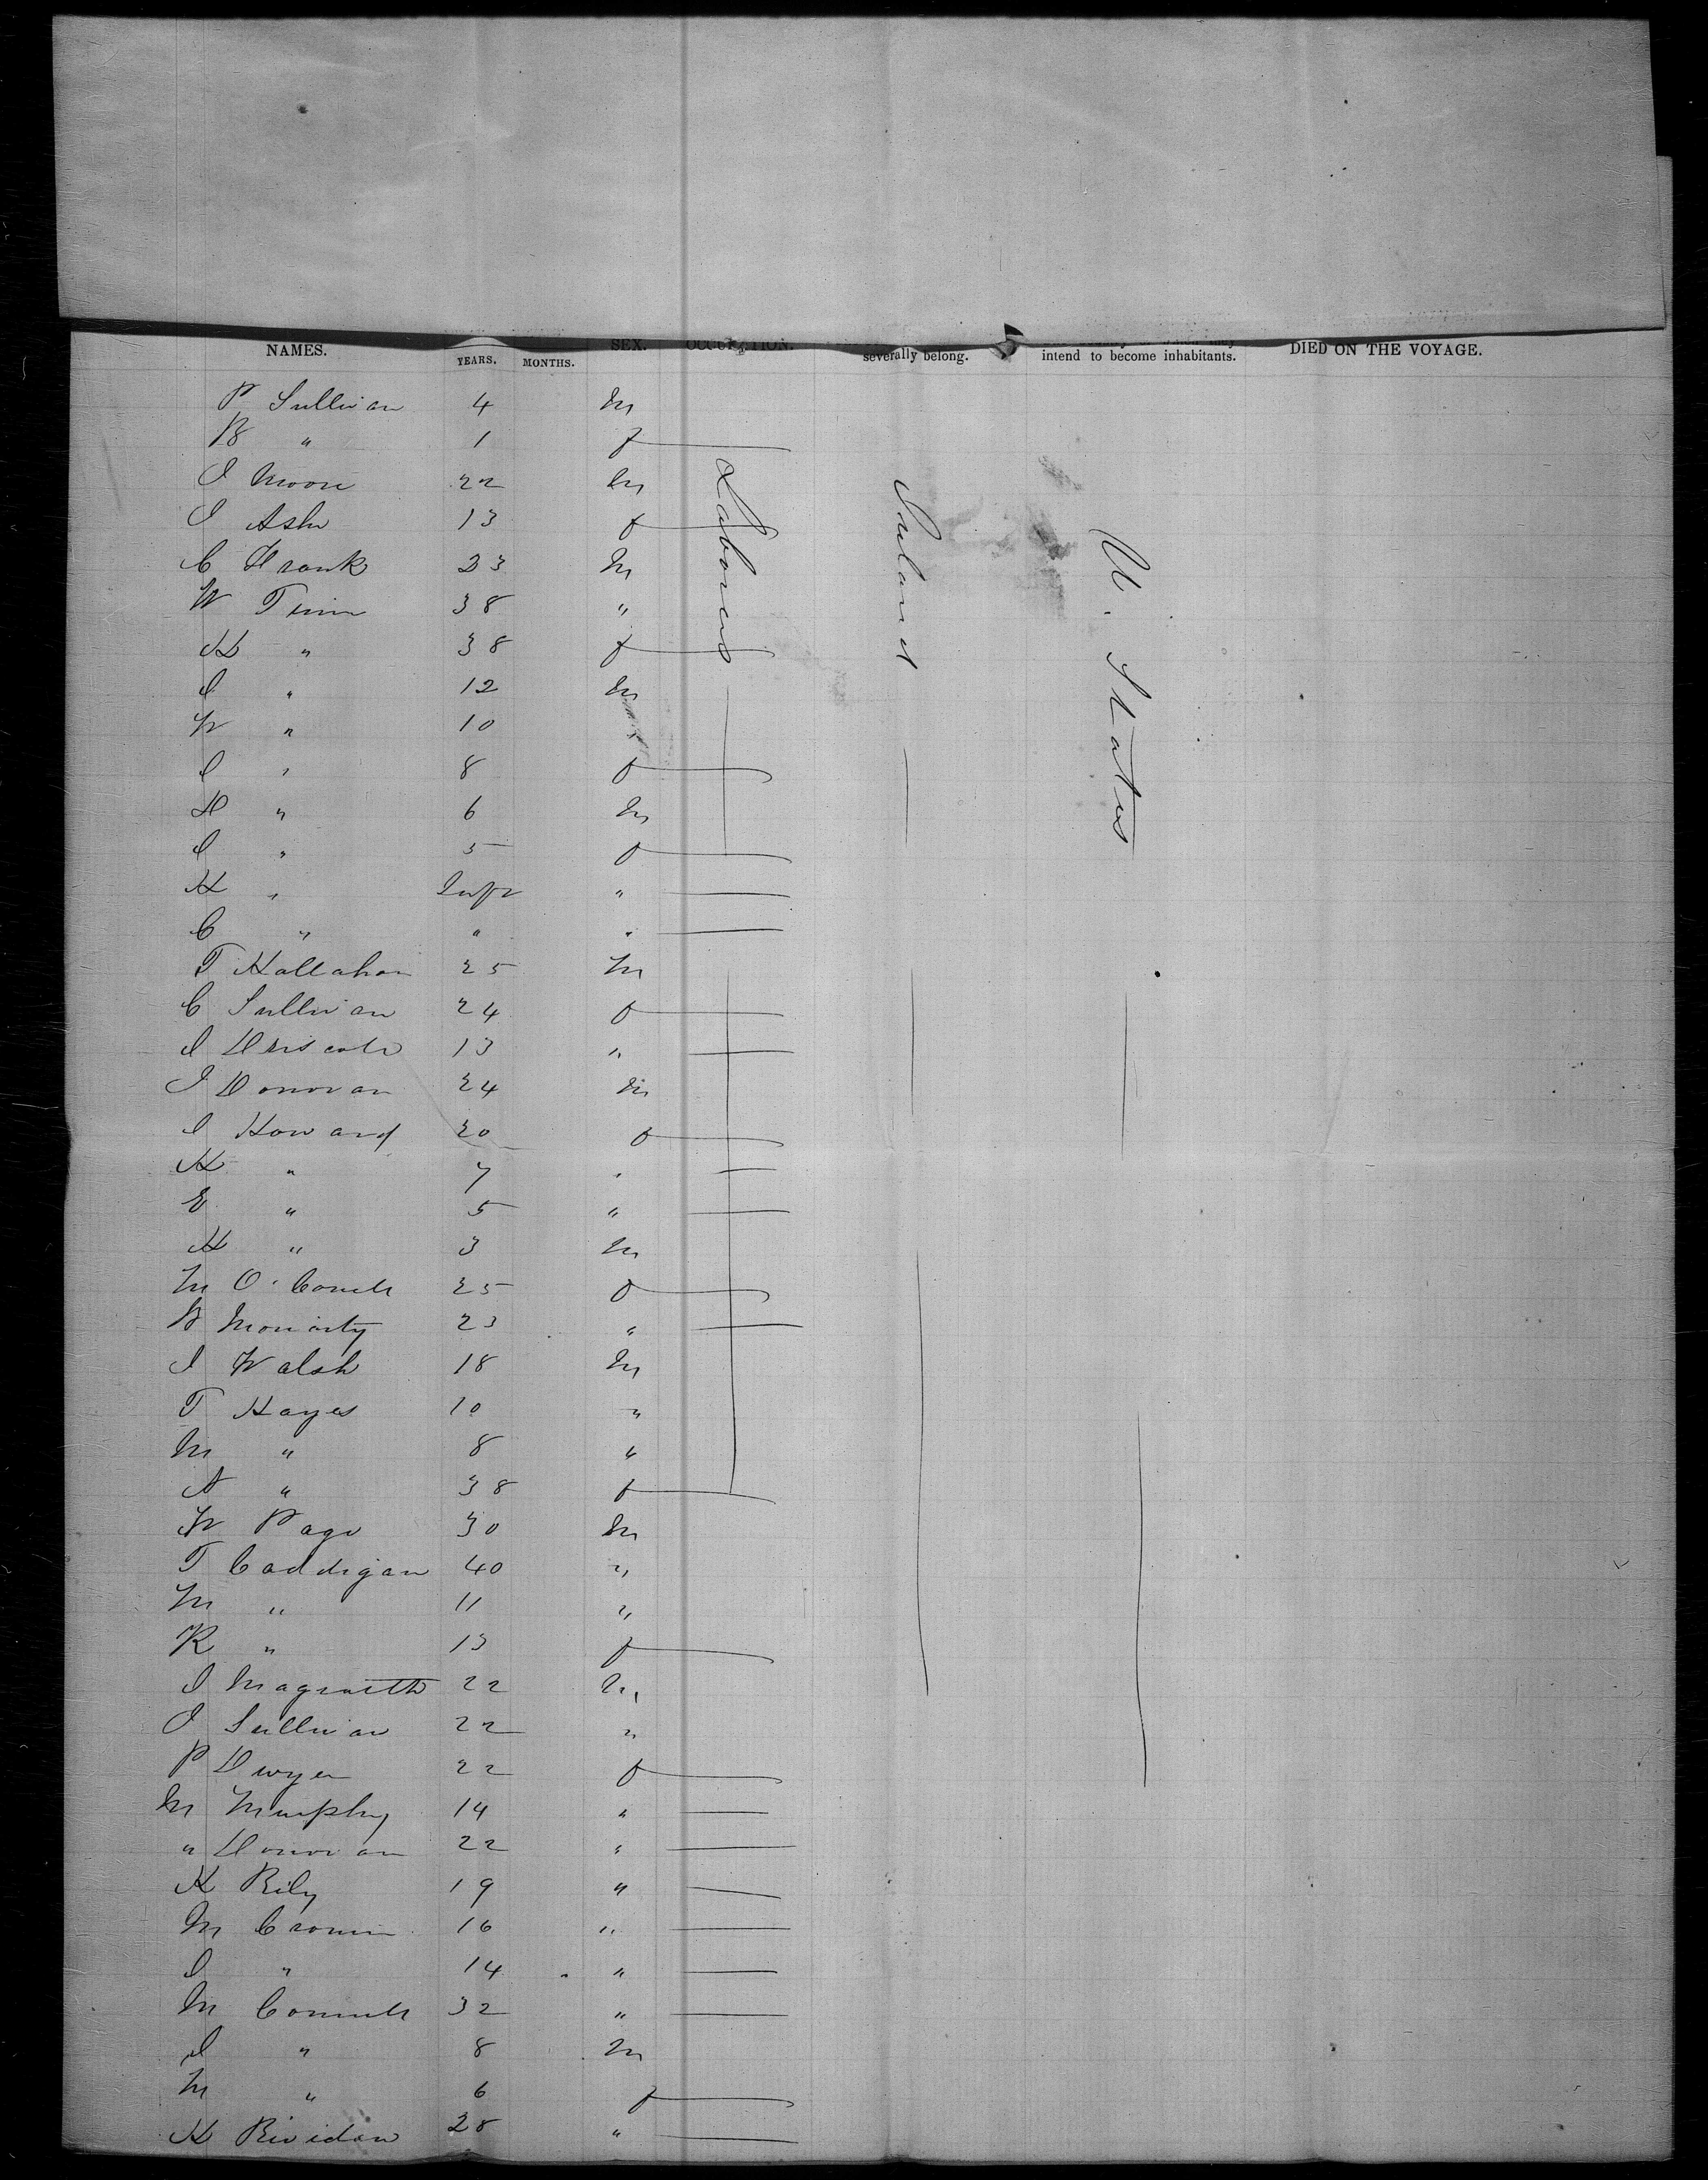 NAMES. YEARS. MONTHS. SEX. OCCUPATION. severally belong. intend to become inhabitants. DIED ON THE VOYAGE.
P Sullivan 4 m
B " 1 f
J Moore 22 m
J Ash 13 f
C Frank 23 m
W Finn 38 "
K " 38 f
J " 12 m
W " 10
J " 8 f
D " 6 m
J " 5 f
K " Inft "
C " " "
T Kallahan 25 m
C Sullivan 24 f
J Driscole 13 "
J Donovan 24 m
J Howard 20 f
K " 7 "
E " 5 "
K " 3 m
M O'Connell 25 f
B Moriarty 23 "
J Walsh 18 m
T Hayes 10 "
M " 8 "
A " 38 f
W Page 30 m
T Caddigan 40 "
M " 11 "
K " 13 f
J Magraith 22 m
J Sullivan 22 "
P Dwyer 22 f
M Murphy 14 "
" Donovan 22 "
K Rily 19 "
M Cronin 16 "
J " 14 "
M Connell 32 "
J " 8 m
M " 6 f
K Rividan 28 "
Laborers
Ireland
U. States